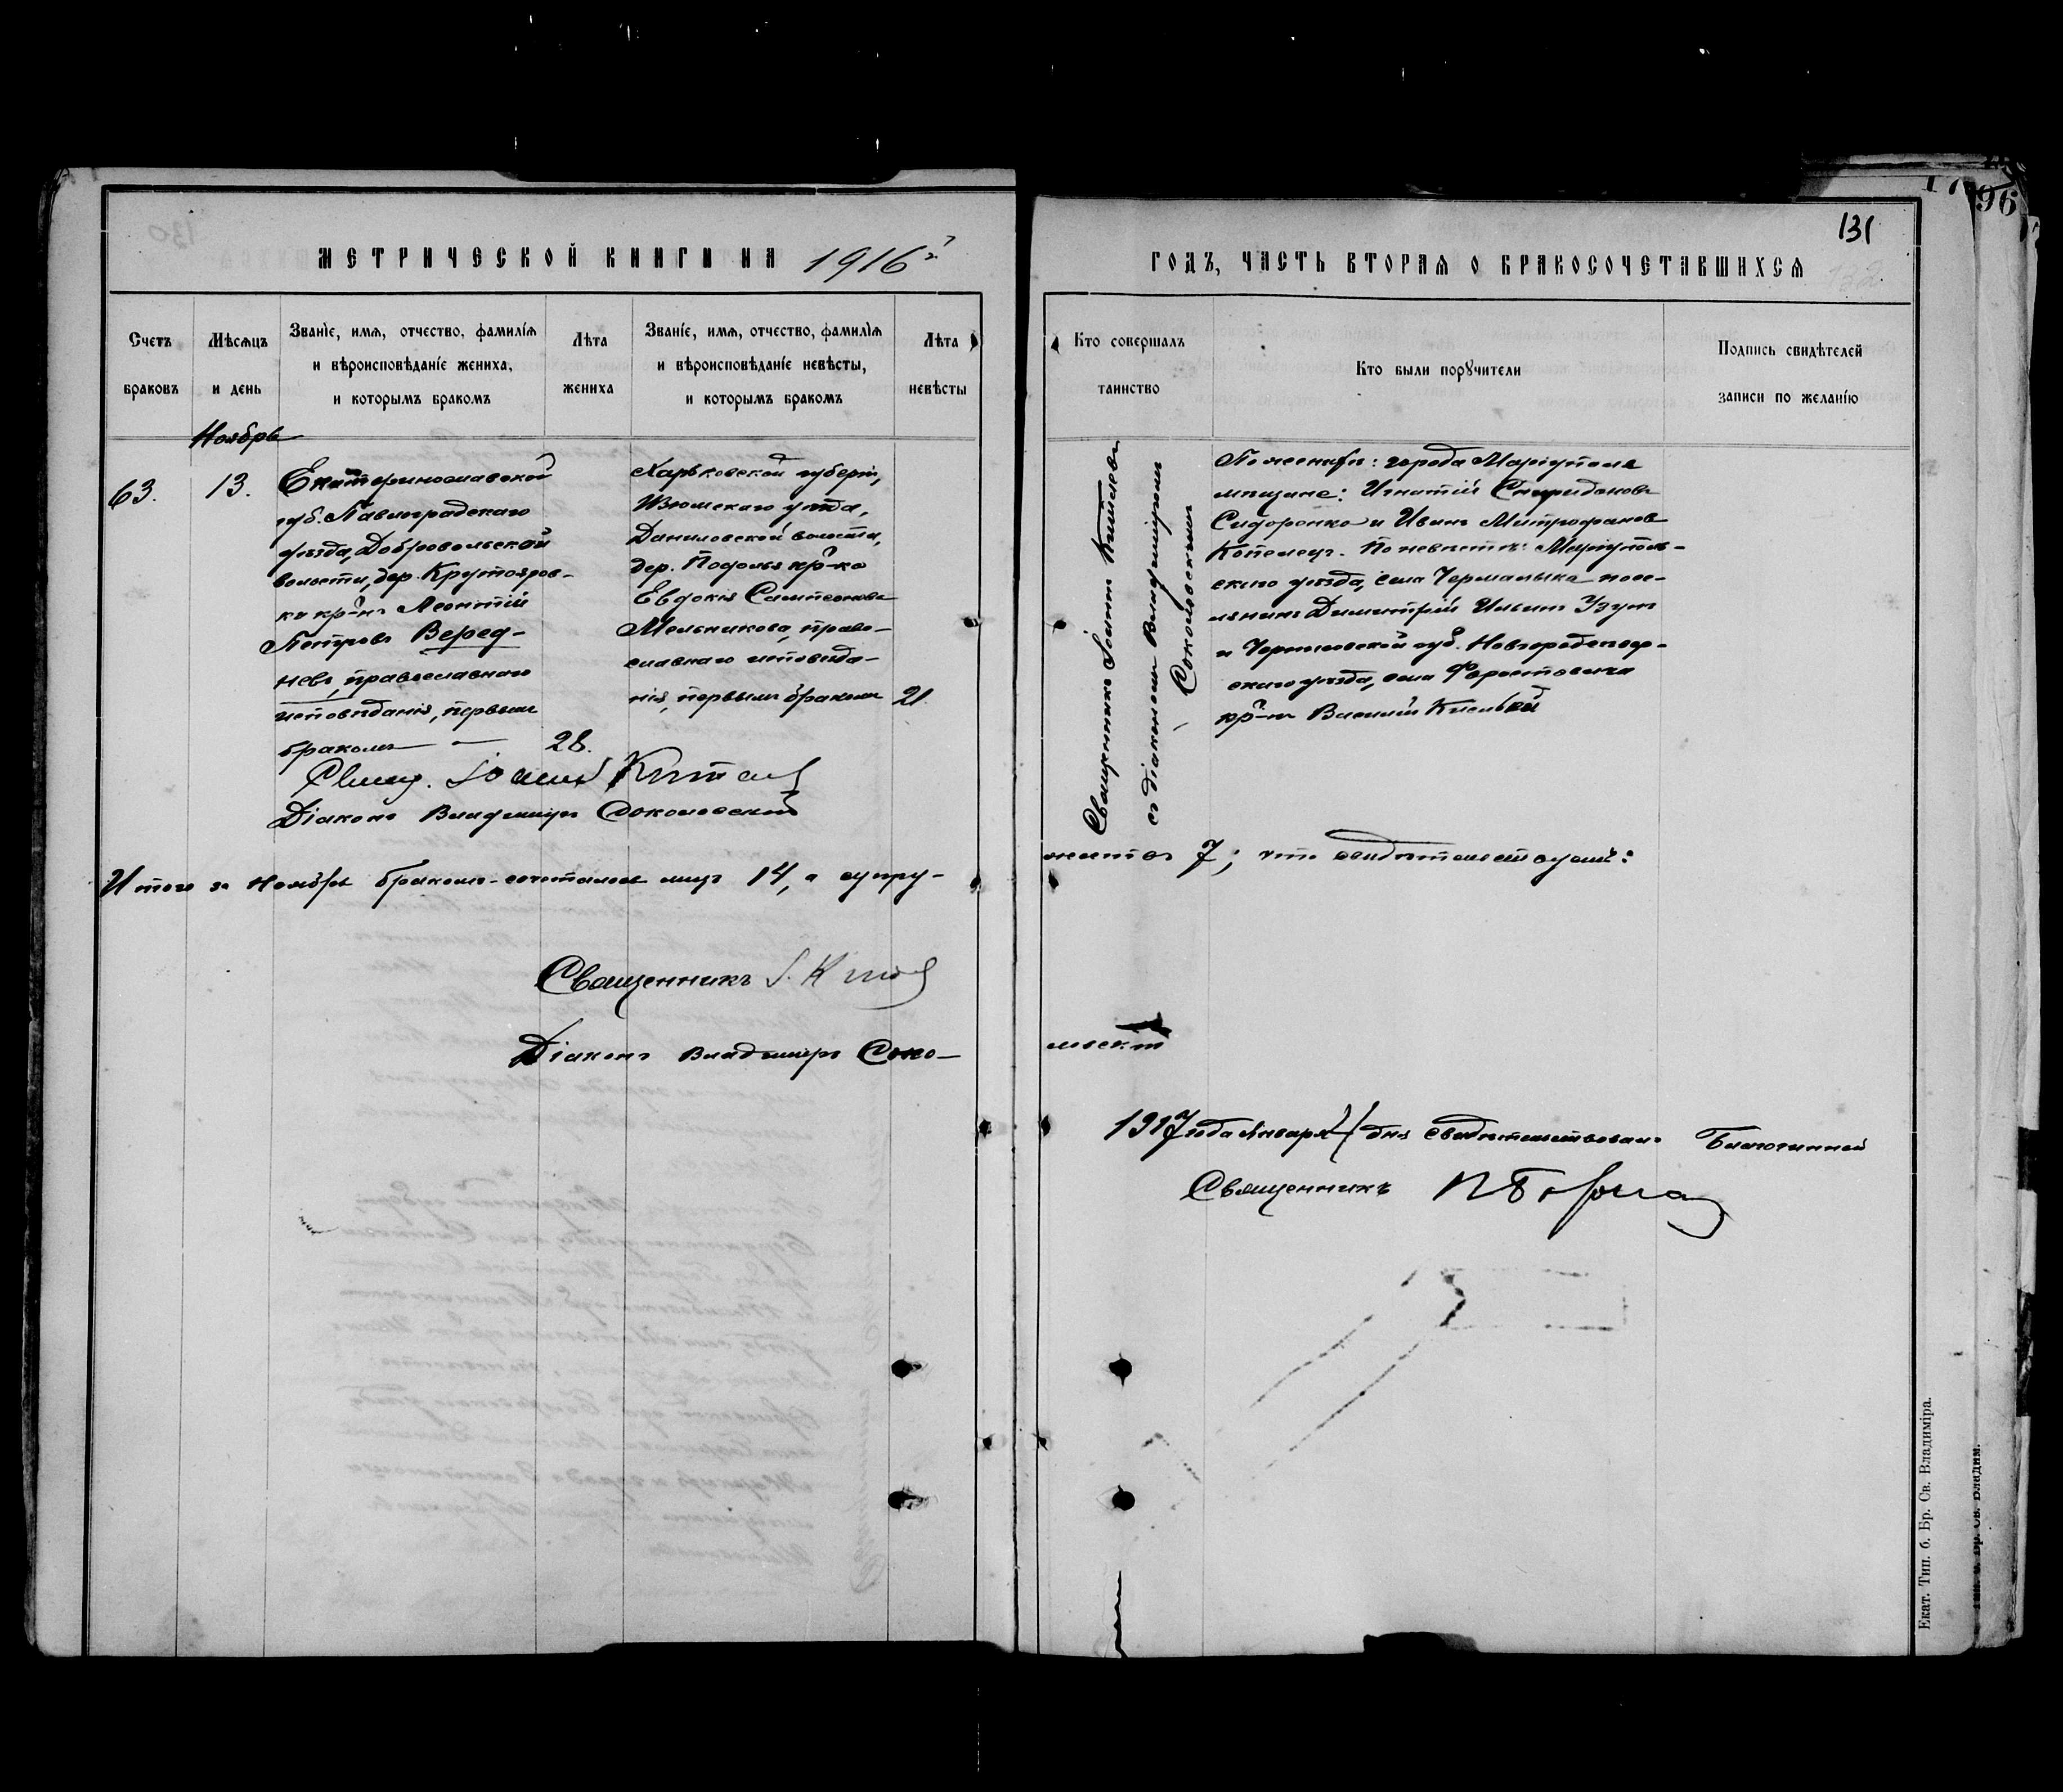 МЕТРИЧЕСКОЙ КНИГИ НА 1916 г.
Счетъ браковъ
Мѣсяцъ и день
Званіе, имя, отчество, фамилія
и вѣроисповѣданіе жениха,
и которымъ бракомъ
Лѣта жениха
Званіе, имя, отчество, фамилія
и вѣроисповѣданіе невѣсты,
и которымъ бракомъ
Лѣта невѣсты
Ноябрь
63.
13.
Екатеринославской
губ. Павлоградскаго
уѣзда, Добровольской
волости, дер. Крутояров-
ки кр-нъ Леонтій
Петровъ Веред-
невъ, православнаго
исповѣданія, первымъ
бракомъ —
28.
Харьковской губерн,
Изюмскаго уѣзда,
Даниловской волости,
дер. Подолья кр-ка
Евдокія Сампсонова
Мельникова, право-
славнаго исповѣда-
нія, первымъ бракомъ
21.
Свящ. Іоаннъ
Діаконъ Владиміръ Сокольскій
Итого за Ноябрь бракомъ сочеталось лицъ 14, а супру-
Священникъ І.
Діаконъ Владиміръ Соко-
131
ГОДЪ, ЧАСТЬ ВТОРАЯ О БРАКОСОЧЕТАВШИХСЯ
Кто совершалъ таинство
Кто были поручители
Подпись свидѣтелей
записи по желанію
Священникъ Іоаннъ
съ діакономъ Владиміромъ
По женихѣ: города Маріуполя
мѣщане: Игнатій Спиридоновъ
Сидоренко и Иванъ Митрофановъ
По невѣстѣ: Маріуполь-
скаго уѣзда, села Чермалыка посе-
лянинъ Димитрій Ильинъ Узун
и Черниговской губ. Новгородсѣвер-
скаго уѣзда, села
кр-нъ Василій
жествъ 7; что свидѣтельствуемъ:
1917 года Января дня свидѣтельствовалъ Благочинный
Священникъ
96
Екат. Тип. б. Бр. Св. Владиміра.